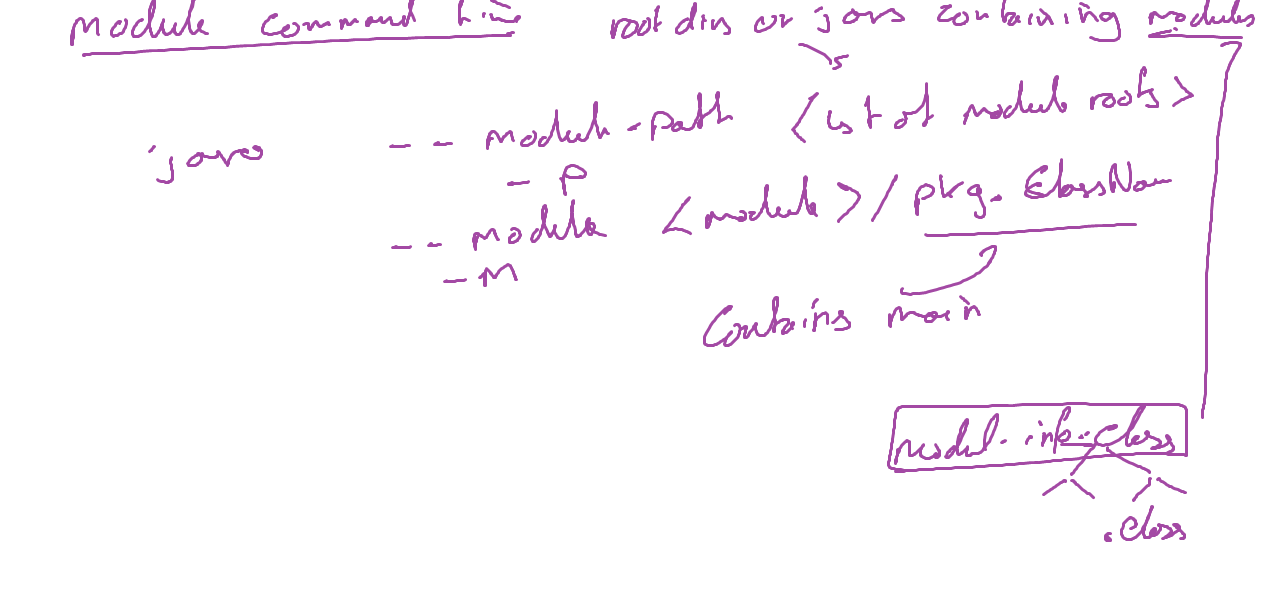 module command line
root dirs or jars containing modules
java
--module-path <list of module roots>
-p
--module <module>/pkg.ClassName
-m
Contains main
module-info.class
.class